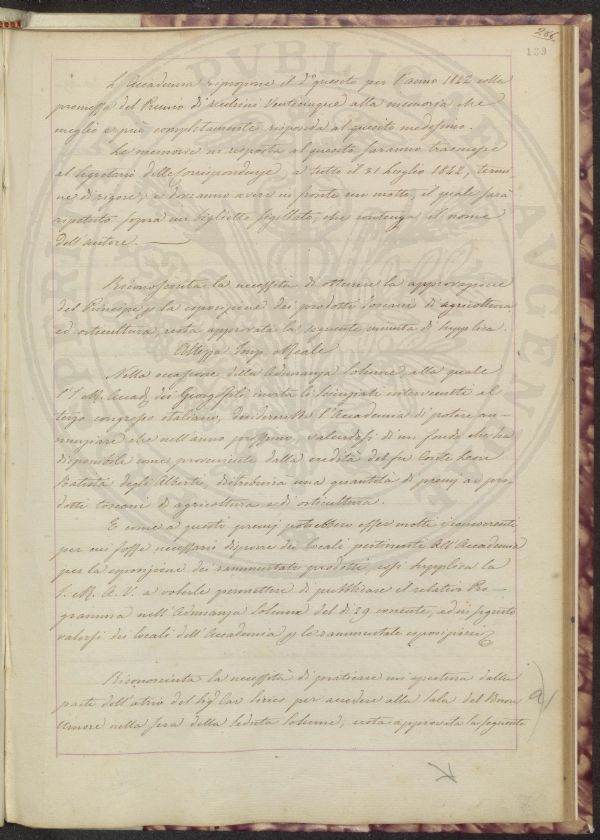 266
139
L'Accademia ripropone il do quesito per l'anno 1842 colla
promessa del Premio di Zecchini Venticinque alla memoria che
meglio e più completamente risponda al quesito medesimo.
Le memorie in risposta al quesito saranno trasmesse
al Segretario delle Corrispondenze a tutto il 31 Luglio 1842, termi-
ne di rigore, e dovranno avere in fronte un motto, il quale sarà
ripetuto sopra un biglietto sigillato, che contenga il nome
dell'autore.
Riconosciuta la necessità di ottenere la approvazione
del Principe p la esposizione dei prodotti toscani di agricoltura
ed orticultura resta approvata la seguente minuta di supplica.
Altezza Imp. e Reale
Nella occasione della Adunanza solenne, alla quale
l'I. e R. Accad. dei Georgofili invita li Scienziati intervenuti al
terzo congresso italiano, desidererebbe l'Accademia di potere an-
nunziare che nell'anno prossimo valendosi di un fondo che ha
disponibile come proveniente dalla eredità del fu Conte Leon
Batista degli Alberti, distribuirà una quantità di premj ai pro-
dotti toscani di agricoltura e di orticultura.
E come a questi premj potrebbero esser molti i concorrenti
per cui fosse necessario disporre dei locali pertinenti all'Accademia
per la esposizione dei rammentati prodotti essi supplica la
I. e R. A. V. a volerle permettere di pubblicare il relativo Pro-
gramma nell'Adunanza solenne del dì 29 corrente, ed in seguito
valersi dei locali dell'Accademia p le rammentate esposizioni
Riconosciuta la necessità di praticare un'apertura dalla
parte dell'atrio del per accedere alla Sala del Buon
Umore nella sera della seduta solenne, resta approvata la seguente